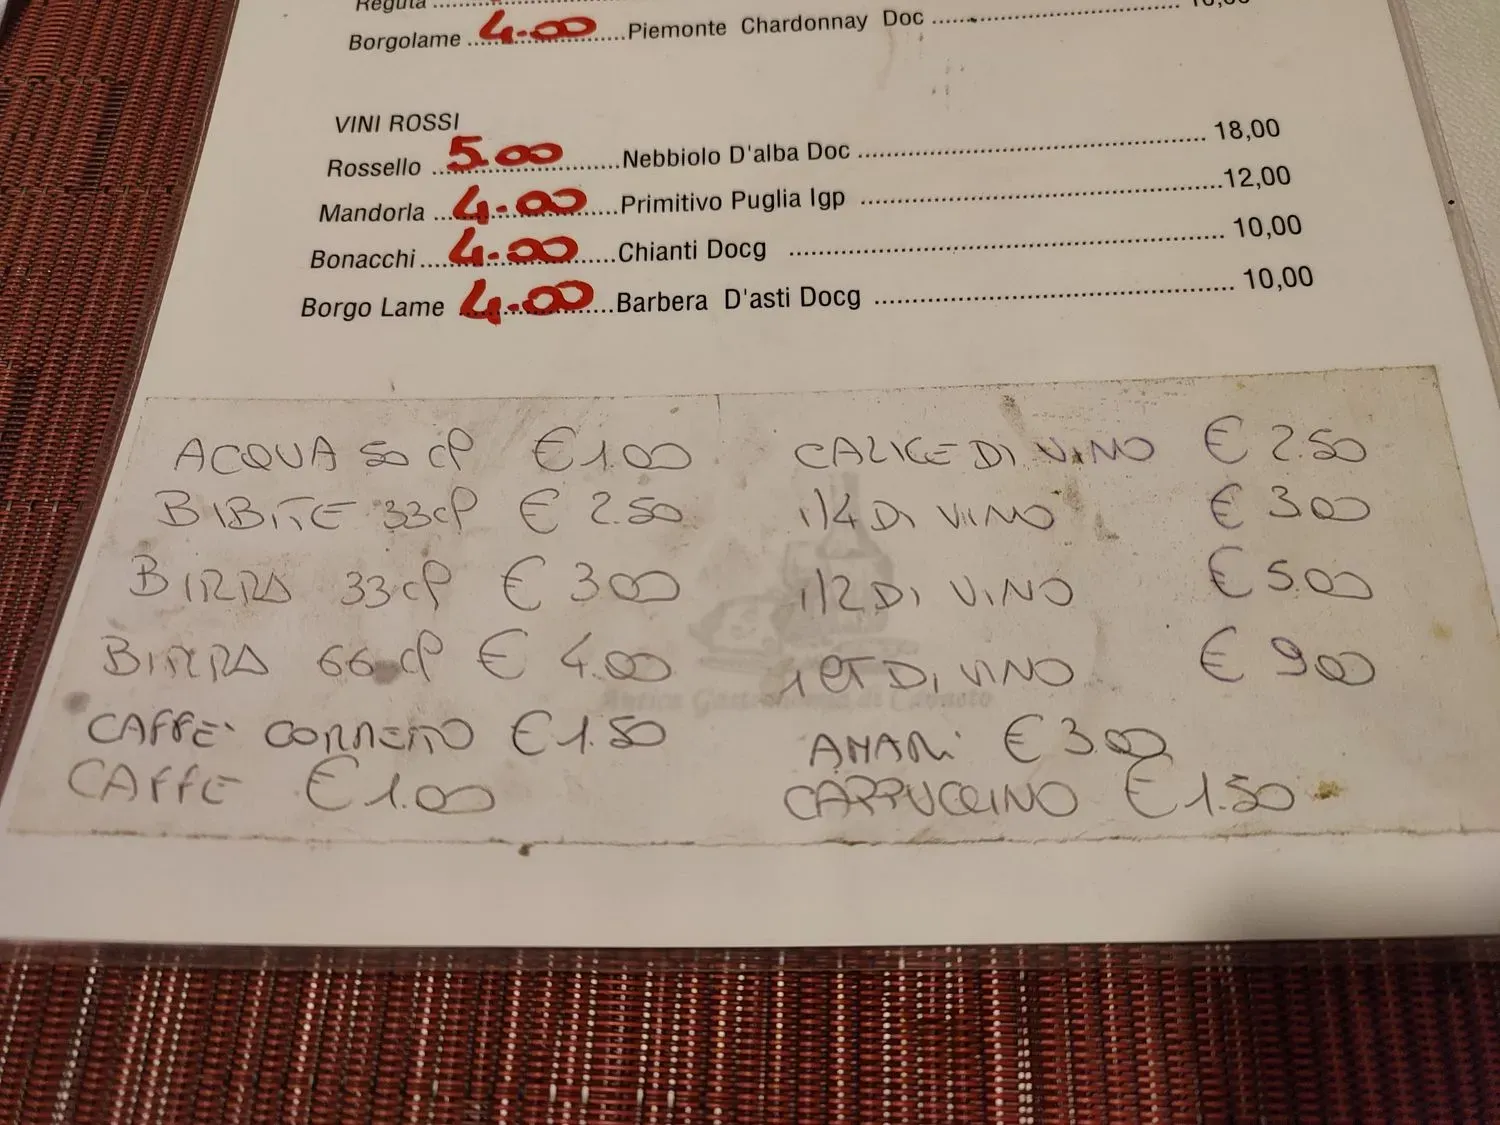 Reguta
Borgolame 4.00 Piemonte Chardonnay Doc
VINI ROSSI
Rossello 5.00 Nebbiolo D'alba Doc 18,00
Mandorla 4.00 Primitivo Puglia Igp 12,00
Bonacchi 4.00 Chianti Docg 10,00
Borgo Lame 4.00 Barbera D'asti Docg 10,00
ACQUA 50 cl € 1.00
BIBITE 33 cl € 2.50
BIRRA 33 cl € 3.00
BIRRA 66 cl € 4.00
CAFFE' CORRETTO € 1.50
CAFFE € 1.00
CALICE DI VINO € 2.50
1/4 DI VINO € 3.00
1/2 DI VINO € 5.00
1 LT DI VINO € 9.00
AMARI € 3.00
CAPPUCCINO € 1.50
Antica Gastronomia di